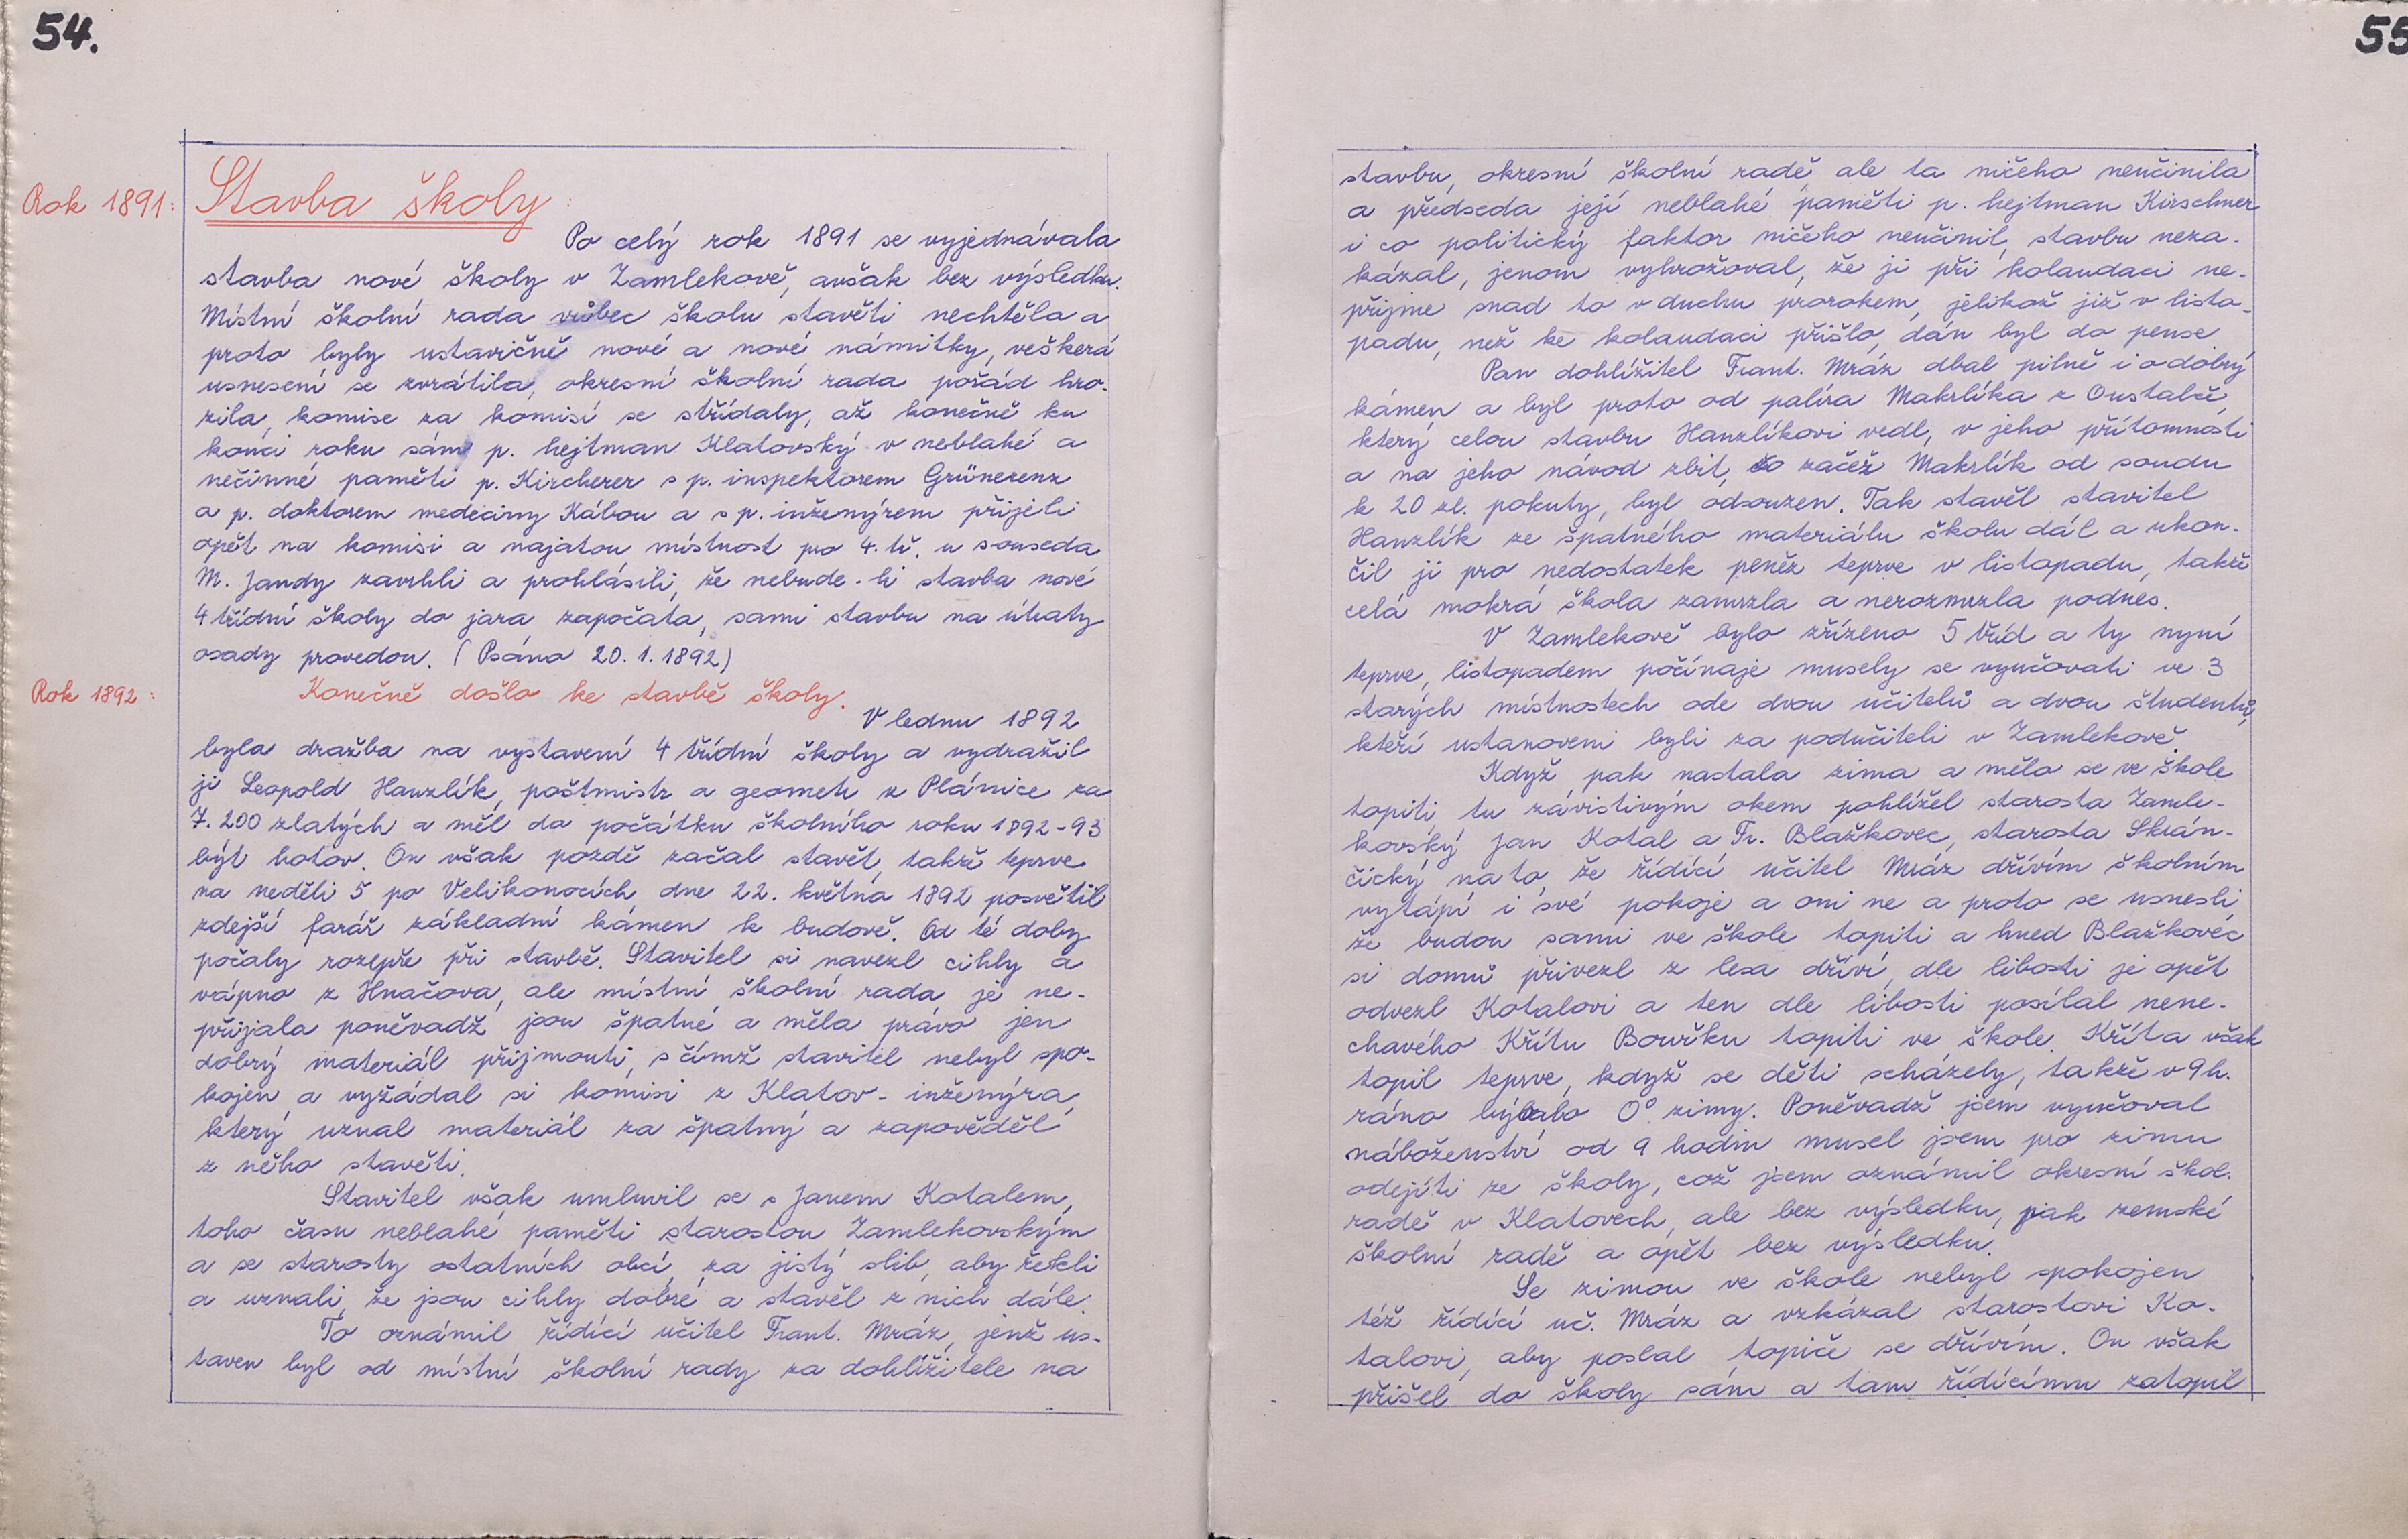 54.
Rok 1891:
Stavba školy:
Po celý rok 1891 se vyjednávala
stavba nové školy v Zamlekově, avšak bez výsledku.
Místní školní rada vůbec školu stavěti nechtěla a
proto byly ustavičně nové a nové námitky, veškerá
usnesení se zvrátila, okresní školní rada pořád hro-
zila, komise za komisí se střídaly, až konečně ku
konci roku sám p. hejtman Klatovský v neblahé a
nečinné paměti p. Kircherer s p. inspektorem Grünerenz
a p. doktorem medeciny Kábou a s p. inženýrem přijeli
opět na komisi a najatou místnost pro 4. tř. u souseda
M. Jandy zavrhli a prohlásili, že nebude-li stavba nové
4 třídní školy do jara započata, sami stavbu na útraty
osady provedou. (Psáno 20. 1. 1892)
Rok 1892:
Konečně došlo ke stavbě školy.
V lednu 1892
byla dražba na vystavení 4 třídní školy a vydražil
ji Leopold Hanzlík, poštmistr a geometr z Plánice za
7.200 zlatých a měl do počátku školního roku 1892-93
být hotov. On však pozdě začal stavět, takže teprve
na neděli 5 po Velikonocích, dne 22. května 1892 posvětil
zdejší farář základní kámen k budově. Od té doby
počaly rozepře při stavbě. Stavitel si navezl cihly a
vápno z Hnačova, ale místní školní rada je ne-
přijala poněvadž jsou špatné a měla právo jen
dobrý materiál přijmouti, s čímž stavitel nebyl spo-
kojen a vyžádal si komisi z Klatov - inženýra,
který uznal materiál za špatný a zapověděl
z něho stavěti.
Stavitel však umluvil se s Janem Kotalem,
toho času neblahé paměti starostou Zamlekovským
a se starosty ostatních obcí, za jistý slib, aby řekli
a uznali, že jsou cihly dobré a stavěl z nich dále.
To oznámil řídící učitel Frant. Mráz, jenž us-
taven byl od místní školní rady za dohlížitele na
55
stavbu, okresní školní radě ale ta ničeho neučinila
a předseda její neblahé paměti p. hejtman Kirschner
i co politický faktor ničeho neučinil, stavbu neza-
kázal, jenom vyhrožoval, že ji při kolaudaci ne-
přijme snad to v duchu prorokem, jelikož již v listo-
padu, než ke kolaudaci přišlo, dán byl do pense.
Pan dohlížitel Frant. Mráz dbal pilně i o dobrý
kámen a byl proto od palíra Makrlíka z Oustalče,
který celou stavbu Hanzlíkovi vedl, v jeho přítomnosti
a na jeho návod zbit, začež Makrlík od soudu
k 20 zl. pokuty, byl odsouzen. Tak stavěl stavitel
Hanzlík ze špatného materiálu školu dál a ukon-
čil ji pro nedostatek peněz teprve v listopadu, takže
celá mokrá škola zamrzla a nerozmrzla podnes.
V Zamlekově bylo zřízeno 5 tříd a ty nyní
teprve, listopadem počínaje musely se vyučovati ve 3
starých místnostech ode dvou učitelů a dvou študentů,
kteří ustanoveni byli za podučiteli v Zamlekově.
Když pak nastala zima a mělo se ve škole
topiti, tu závistivým okem pohlížel starosta Zamle-
kovský Jan Kotal a Fr. Blažkovec, starosta Skrán-
čický na to, že řídící učitel Mráz dřívím školním
vytápí i své pokoje a oni ne a proto se usnesli
že budou sami ve škole topiti a hned Blažkovec
si domů přivezl z lesa dříví, dle libosti je opět
odvezl Kotalovi a ten dle libosti posílal nene-
chavého Křítu Bouřku topiti ve škole. Kříta však
topil teprve, když se děti scházely, takže v 9 h.
ráno bývalo 0° zimy. Poněvadž jsem vyučoval
náboženství od 9 hodin musel jsem pro zimu
odejíti ze školy, což jsem oznámil okresní škol.
radě v Klatovech, ale bez výsledku, pak zemské
školní radě a opět bez výsledku.
Se zimou ve škole nebyl spokojen
též řídící uč. Mráz a vzkázal starostovi Ko-
talovi, aby poslal topiče se dřívím. On však
přišel do školy sám a tam řídícímu zatopil